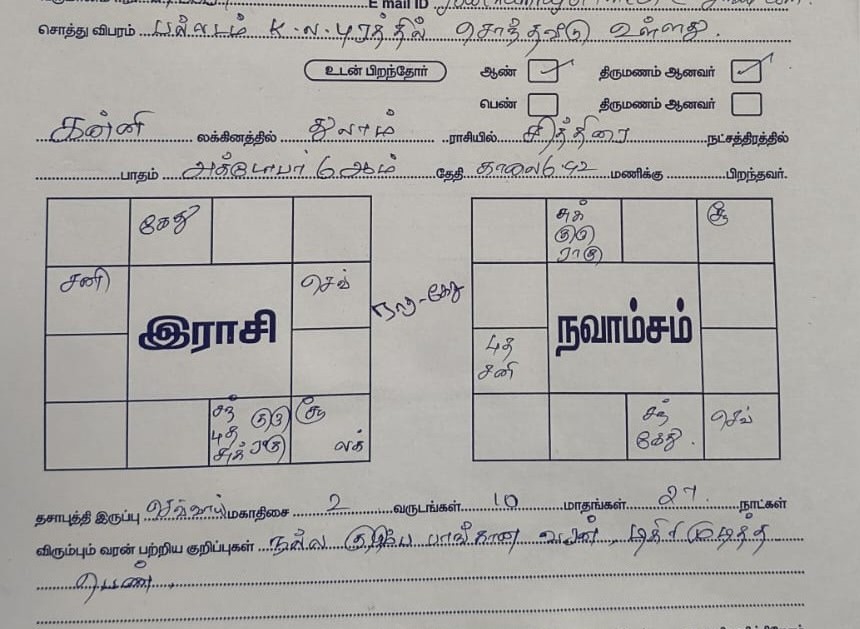 E mail ID
சொத்து விபரம் பல்லடம் K.ல.புரத்தில் சொந்தவீடு உள்ளது.
உடன் பிறந்தோர் ஆண் திருமணம் ஆனவர்
பெண் திருமணம் ஆனவர்
கன்னி லக்கினத்தில் துலாம் ராசியில் சித்திரை நட்சத்திரத்தில்
பாதம் அக்டோபர் 6 ஆம் தேதி காலை 6.42 மணிக்கு பிறந்தவர்.
கேது
சனி
செவ்
இராசி
சந் குரு
புத ராகு
சுக்
சூ
லக்
சுக்
குரு
ராகு
சூ
நவாம்சம்
புத
சனி
சந்
கேது.
செவ்
தசாபுத்தி இருப்பு செவ்வாய் மகாதிசை 2 வருடங்கள் 10 மாதங்கள் 27. நாட்கள்
விரும்பும் வரன் பற்றிய குறிப்புகள் நல்ல குடும்ப பாங்கான வரன், டிகிரி முடித்த
பெண்.